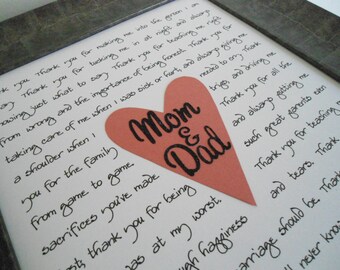 you. Thank you for making me into the person I am
Thank you for tucking me in at night and
knowing just what to say. Thank you for teaching me right
from wrong and the importance of being honest. Thank you for
taking care of me when I was sick or hurt, and always giving me
a shoulder when I needed to cry. Thank
you for the family trips and driving me
from game to game. Thank you for all the
sacrifices you've made and always getting me
Mom
&
Dad
thank you for being such great parents even
was at my worst. Thank you for teaching me
through happiness and tears. Thank
marriage should be. Thank
I will never know